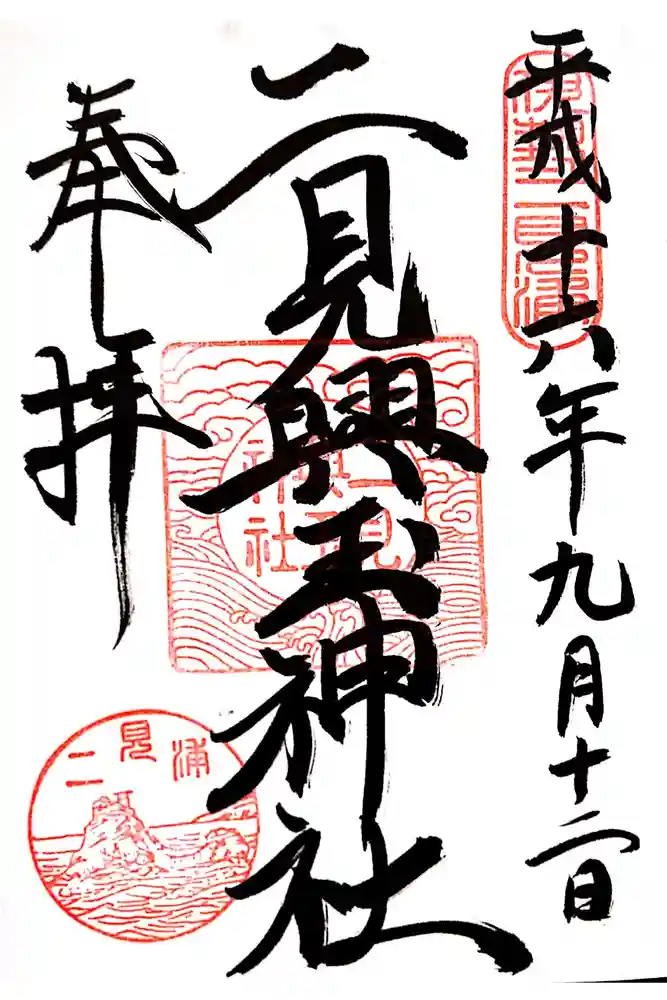 平成十六年九月十二日
伊勢二見浦
二見興玉神社
二見興玉神社
奉拝
二見浦